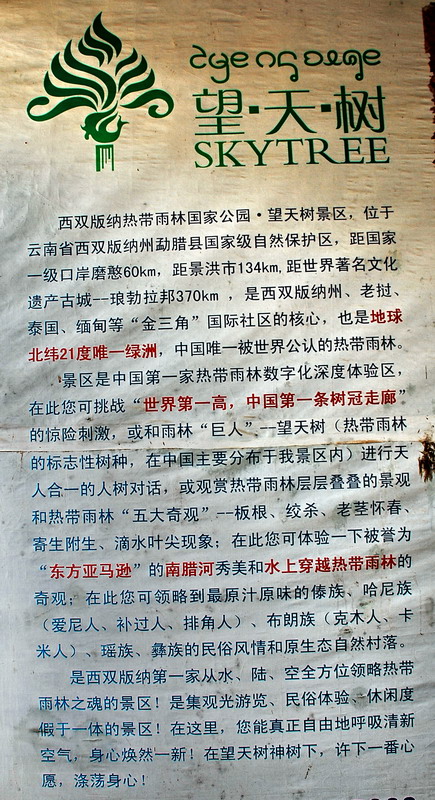 望·天·树
SKYTREE
西双版纳热带雨林国家公园·望天树景区，位于
云南省西双版纳州勐腊县国家级自然保护区，距国家
一级口岸磨憨60km，距景洪市134km,距世界著名文化
遗产古城--琅勃拉邦370km ，是西双版纳州、老挝、
泰国、缅甸等“金三角”国际社区的核心，也是地球
北纬21度唯一绿洲，中国唯一被世界公认的热带雨林。
景区是中国第一家热带雨林数字化深度体验区，
在此您可挑战“世界第一高，中国第一条树冠走廊”
的惊险刺激，或和雨林“巨人”--望天树（热带雨林
的标志性树种，在中国主要分布于我景区内）进行天
人合一的人树对话，或观赏热带雨林层层叠叠的景观
和热带雨林“五大奇观”--板根、绞杀、老茎怀春、
寄生附生、滴水叶尖现象；在此您可体验一下被誉为
“东方亚马逊”的南腊河秀美和水上穿越热带雨林的
奇观；在此您可领略到最原汁原味的傣族、哈尼族
（爱尼人、补过人、排角人）、布朗族（克木人、卡
米人）、瑶族、彝族的民俗风情和原生态自然村落。
是西双版纳第一家从水、陆、空全方位领略热带
雨林之魂的景区！是集观光游览、民俗体验、休闲度
假于一体的景区！在这里，您能真正自由地呼吸清新
空气，身心焕然一新！在望天树神树下，许下一番心
愿，涤荡身心！